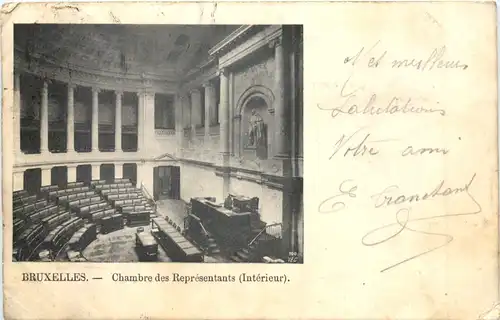 Mes meilleures
Salutations
Votre ami
E
BRUXELLES. — Chambre des Représentants (Intérieur).